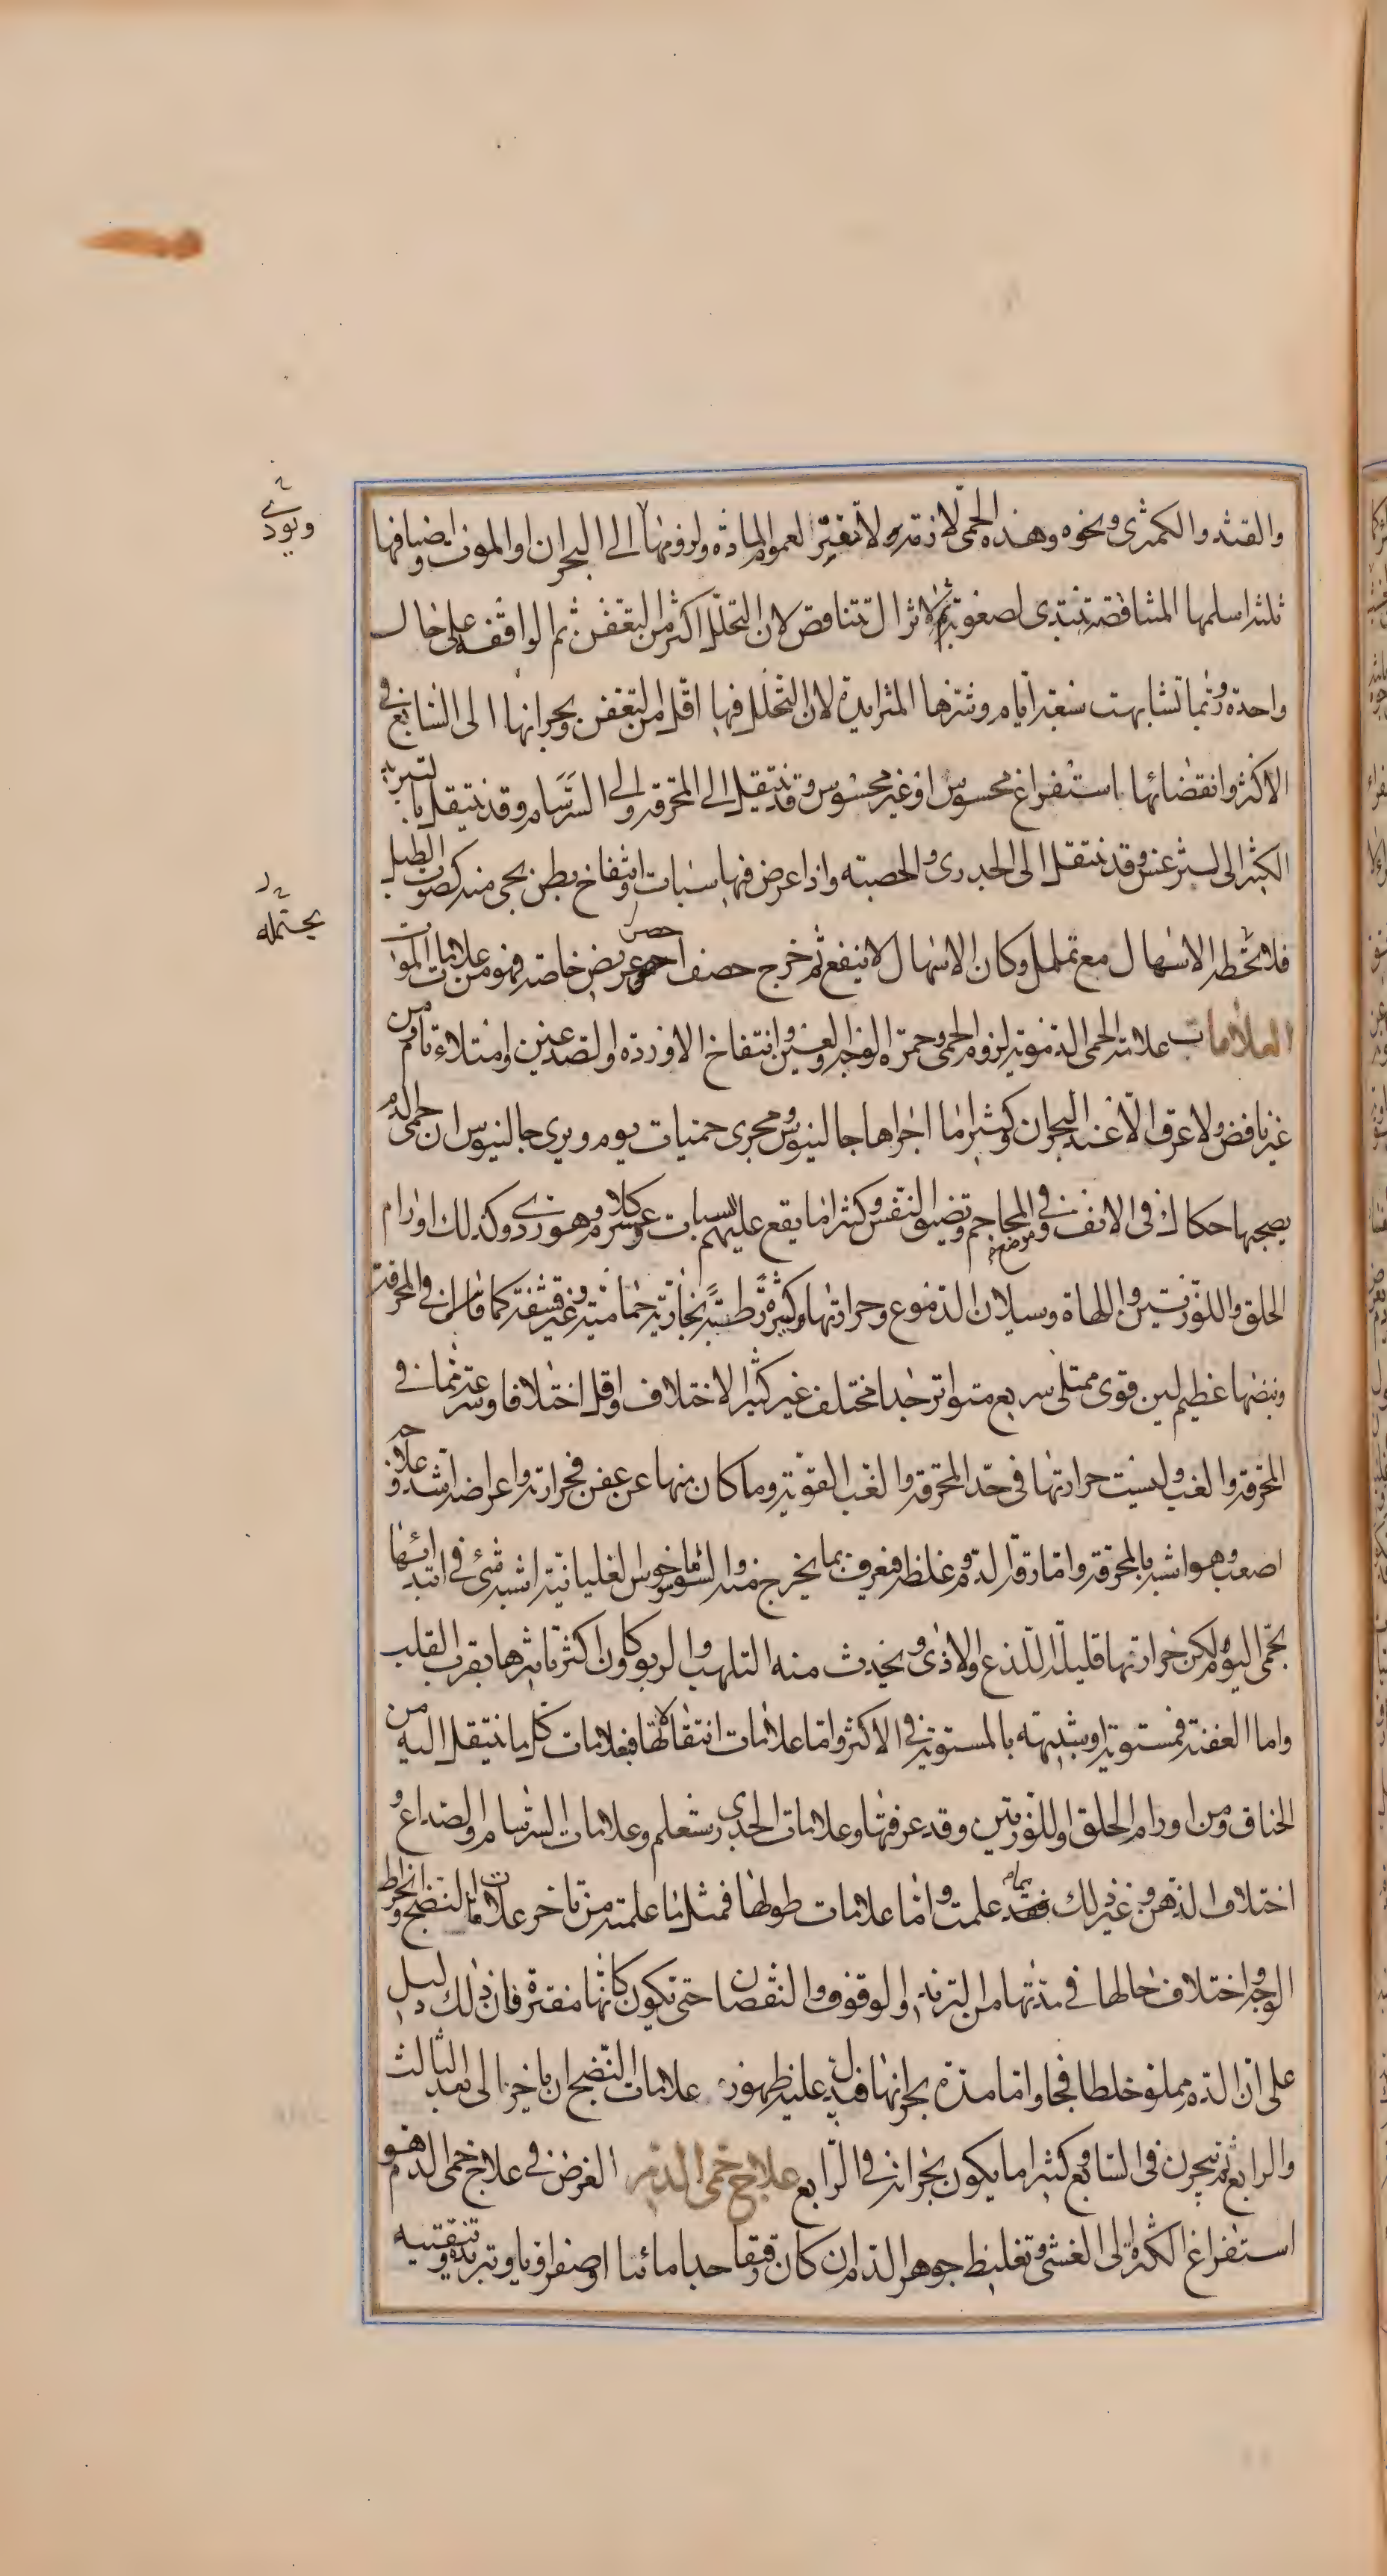 والقثد والكمثرى ونحوه وهذه الحمى لازمة ولا تفتر لعموم المادة ولزومها الى البحران او الموت واصنافها
ثلثة اسلمها المتناقصة تبتدى لصعوبة ثم لا تزال تتناقص لان التحلل اكثر من التعفن ثم الواقفة على حال
واحدة وربما تشابهت سبعة ايام وشرها المتزايدة لان التحلل فيها اقل من التعفن وبحرانها الى السابع في
الاكثر وانقضائها باستفراغ محسوس او غير محسوس وقد تنتقل الى المحرقة والى السرسام وقد ينتقل بالتبريد
الكثير الى ليثرغس وقد تنتقل الى الجدرى والحصبه واذا عرض فيها سبات وانتفاخ بطن يجى منه كصوت الطبل
فلا يحطه الاسهال مع تململ وكان الاسهال لا ينفع ثم خرج حصف اخضر عريض خاصة فهو من علامات الموت
العلامات علامة الحمى الدموية لزوم الحمى وحمرة الوجه والعين وانتفاخ الاوردة والصدغين وامتلاء تام من
غير نافض ولا عرق الا عند البحران وكثيرا ما اجراها جالينوس مجرى حميات يوم ويرى جالينوس ان حمى الدم
يصحبها حكاك فى الانف وفى المحاجم وتضيق النفس وكثيرا ما يقع عليهم السبات وعسر كلام وهو ردى وكذلك اورام
الحلق واللوزتين واللهاة وسيلان الدموع وحرارتها وكثيرة رطبة بخارية حمامية وغير قشفة كما في المحرقة
ونبضها عظيم لين قوى ممتلى سريع متواتر جدا مختلف غير كثير الاختلاف واقل اختلافا وسرعة مما فى
المحرقة والغب وليست حرارتها فى حد المحرقة والغب القوية وما كان منها عن عفن فحرارته واعراضه اشد وعلاجه
اصعب وهو اشبه بالمحرقة واما رقة الدم وغلظه فتعرف بما يخرج منه والسوناخوس الغليانية اشبه شى فى ابتدائها
بحمى اليوم لكن حرارتها قليلة اللذع والاذى ويحدث منه التلهب والربو كاون اكثر تاثيرها بقرب القلب
واما العفنة فمستوية او شبيهه بالمستوية فى الاكثر واما علامات انتقالاتها فعلامات كل ما ينتقل اليه من
الخناق ومن اورام الحلق او اللوزتين وقد عرفتها وعلامات الجدرى ستعلم وعلامات السرسام والصداع و
اختلاف الذهن وغير ذلك مما قد علمت واما علامات طولها فمثل ما علمته من تاخر علامات النضج وانخراط
الوجه واختلاف حالها فى مدتها من التزيد والوقوف والنقصان حتى تكون كانها مفترة فان ذلك دليل
على ان الدم مملو خلطا فجا واما مدة بحرانها فيدل عليه ظهور علامات النضج ان تاخر الى بعد الثالث
والرابع لم تبحرن فى السابع وكثيرا ما يكون بحرانه فى الرابع علاج حمى الدم الغرض فى علاج حمى الدم هو
استفراغ الكثير الى الغشى وتغليظ جوهر الدم ان كان رقيقا جدا مائيا او صفراويا وتبريده وتنقيته
ويودى
يحتمله